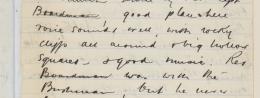 Boardman, good place where
voice sounds well, with rocky
cliffs all around & big hollow
square & good music. Rev
Boardman was with the
Bushman, but he never